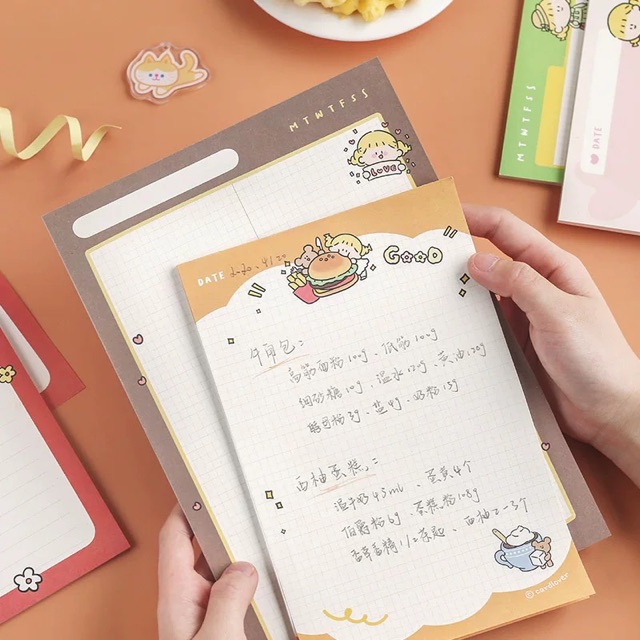 MTWTFSS
LOVE
DATE 2020.4/20
GOOD
牛角包：
高筋面粉100g、低筋100g
细砂糖10g、温水120g、黄油120g
酵母粉3g、盐4g、奶粉15g
西柚蛋糕：
温牛奶45ml、蛋黄4个
伯爵粉6g 蛋糕粉108g
香草香精1/2茶匙、西柚2-3个
©cardlover
MTWTFSS
DATE